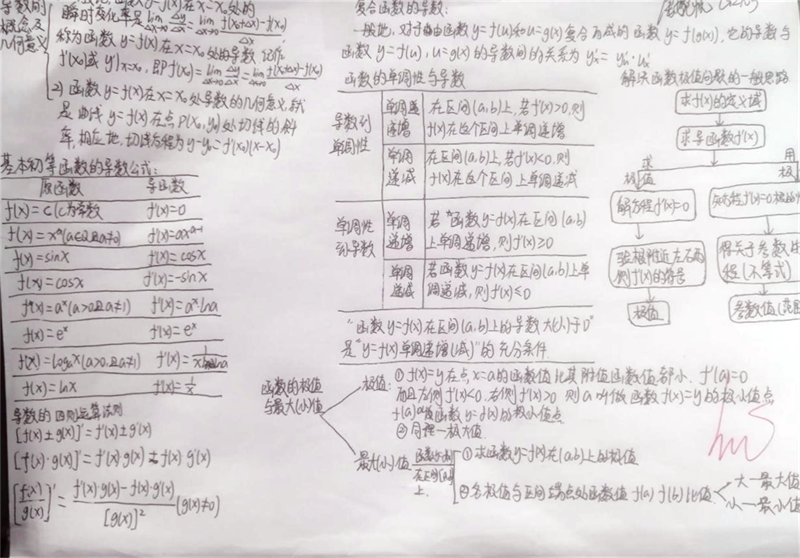 导数的
概念及
几何意义
瞬时变化率是 lim Δx→0 Δy/Δx = lim Δx→0 f(x₀+Δx)-f(x₀)/Δx
称为函数 y=f(x) 在 x=x₀ 处的导数 记作
f'(x₀) 或 y'|x=x₀, 即 f'(x₀)= lim Δx→0 Δy/Δx = lim Δx→0 f(x₀+Δx)-f(x₀)/Δx
2) 函数 y=f(x) 在 x=x₀ 处导数的几何意义,就
是曲线 y=f(x) 在点 P(x₀,y₀) 处切线的斜
率,相应地,切线方程为 y-y₀=f'(x₀)(x-x₀)
基本初等函数的导数公式:
原函数 导函数
f(x)=c(c为常数 f'(x)=0
f(x)=xᵅ(a∈Q且a≠0) f'(x)=axᵅ⁻¹
f(x)=sinx f'(x)=cosx
f(x)=cosx f'(x)=-sinx
f(x)=aˣ(a>0且a≠1) f'(x)=aˣlna
f(x)=eˣ f'(x)=eˣ
f(x)=logₐx(a>0且a≠1) f'(x)=
f(x)=lnx f'(x)=1/x
导数的四则运算法则
[f(x)±g(x)]'=f'(x)±g'(x)
[f(x)·g(x)]'=f'(x)·g(x)+f(x)·g'(x)
[f(x)/g(x)]'=f'(x)·g(x)-f(x)·g'(x)/[g(x)]² (g(x)≠0)
复合函数的导数:
一般地,对于由函数 y=f(u) 和 u=g(x) 复合而成的函数 y=f(g(x)),它的导数与
函数 y=f(u), u=g(x) 的导数间的关系为 y'ₓ= y'ᵤ·u'ₓ
函数的单调性与导数
导数到
单调性
单调递
递增
在区间(a,b)上,若f'(x)>0,则
f(x)在这个区间上单调递增
单调
递减
在区间(a,b)上,若f'(x)<0,则
f(x)在这个区间上单调递减
单调性
到导数
单调
递增
若函数y=f(x)在区间(a,b)
上单调递增,则f'(x)≥0
单调
递减
若函数y=f(x)在区间(a,b)上单
调递减,则f'(x)≤0
“函数y=f(x)在区间(a,b)上的导数大(小)于0”
是“y=f(x)单调递增(减)”的充分条件.
函数的极值
与最大(小)值
极值:
①f(x)=y在点x=a的函数值比其附值函数值都小. f'(a)=0
而且左侧f'(x)<0,右侧f'(x)>0 则a叫做函数f(x)=y的极小值点
f(a)叫做函数y=f(x)的极小值点
②同理—极大值.
最大(小)值
在区间
上.
①求函数y=f(x)在(a,b)上的极值
②各极值与区间端点处函数值f(a) f(b)比值
大—最大值
小—最小值
解决函数极值问题的一般思路
求f(x)的定义域
求导函数f'(x)
求
极值
用
极
解方程f'(x)=0
验根附近左右两
则f'(x)的符号
极值
知方程f'(x)=0根的
得关于参数的
程(不等式)
参数值(范围